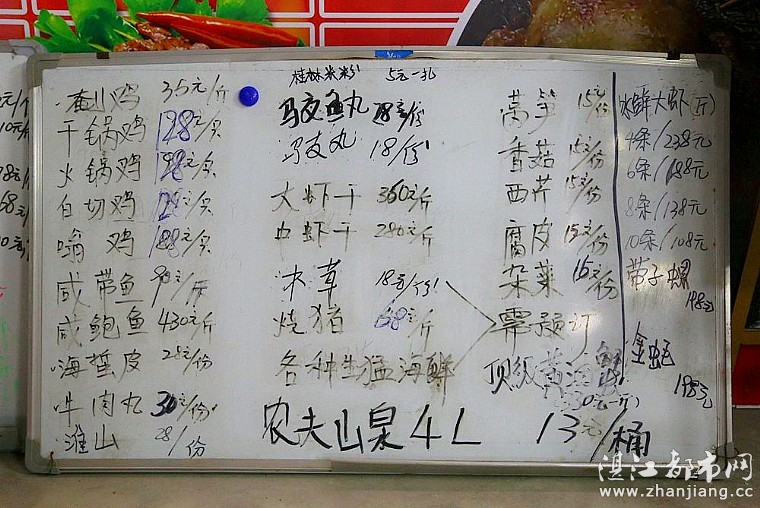 走山鸡 35元/斤
干锅鸡 128元/只
火锅鸡 128元/只
白切鸡 128元/只
鸡 188元/只
咸带鱼 90元/斤
咸鲍鱼 430元/斤
海蜇皮 28元/份
牛肉丸 30元/份
淮山 28/份
桂林米粉 5元一扎
马友鱼丸 28元/份
马友丸 18/份
大虾干 360元/斤
中虾干 280元/斤
木草 18元/份
烧猪 68元/斤
各种生猛海鲜
农夫山泉4L 13元/桶
莴笋 15元/份
香菇 15元/份
西芹 15元/份
腐皮 15元/份
杂菜 15元/份
需预订
顶级黄油蟹
水鲜大虾(斤)
4条/238元
6条/188元
8条/138元
10条/108元
带子螺
198元
金蚝
198元
湛江都市网
www.zhanjiang.cc